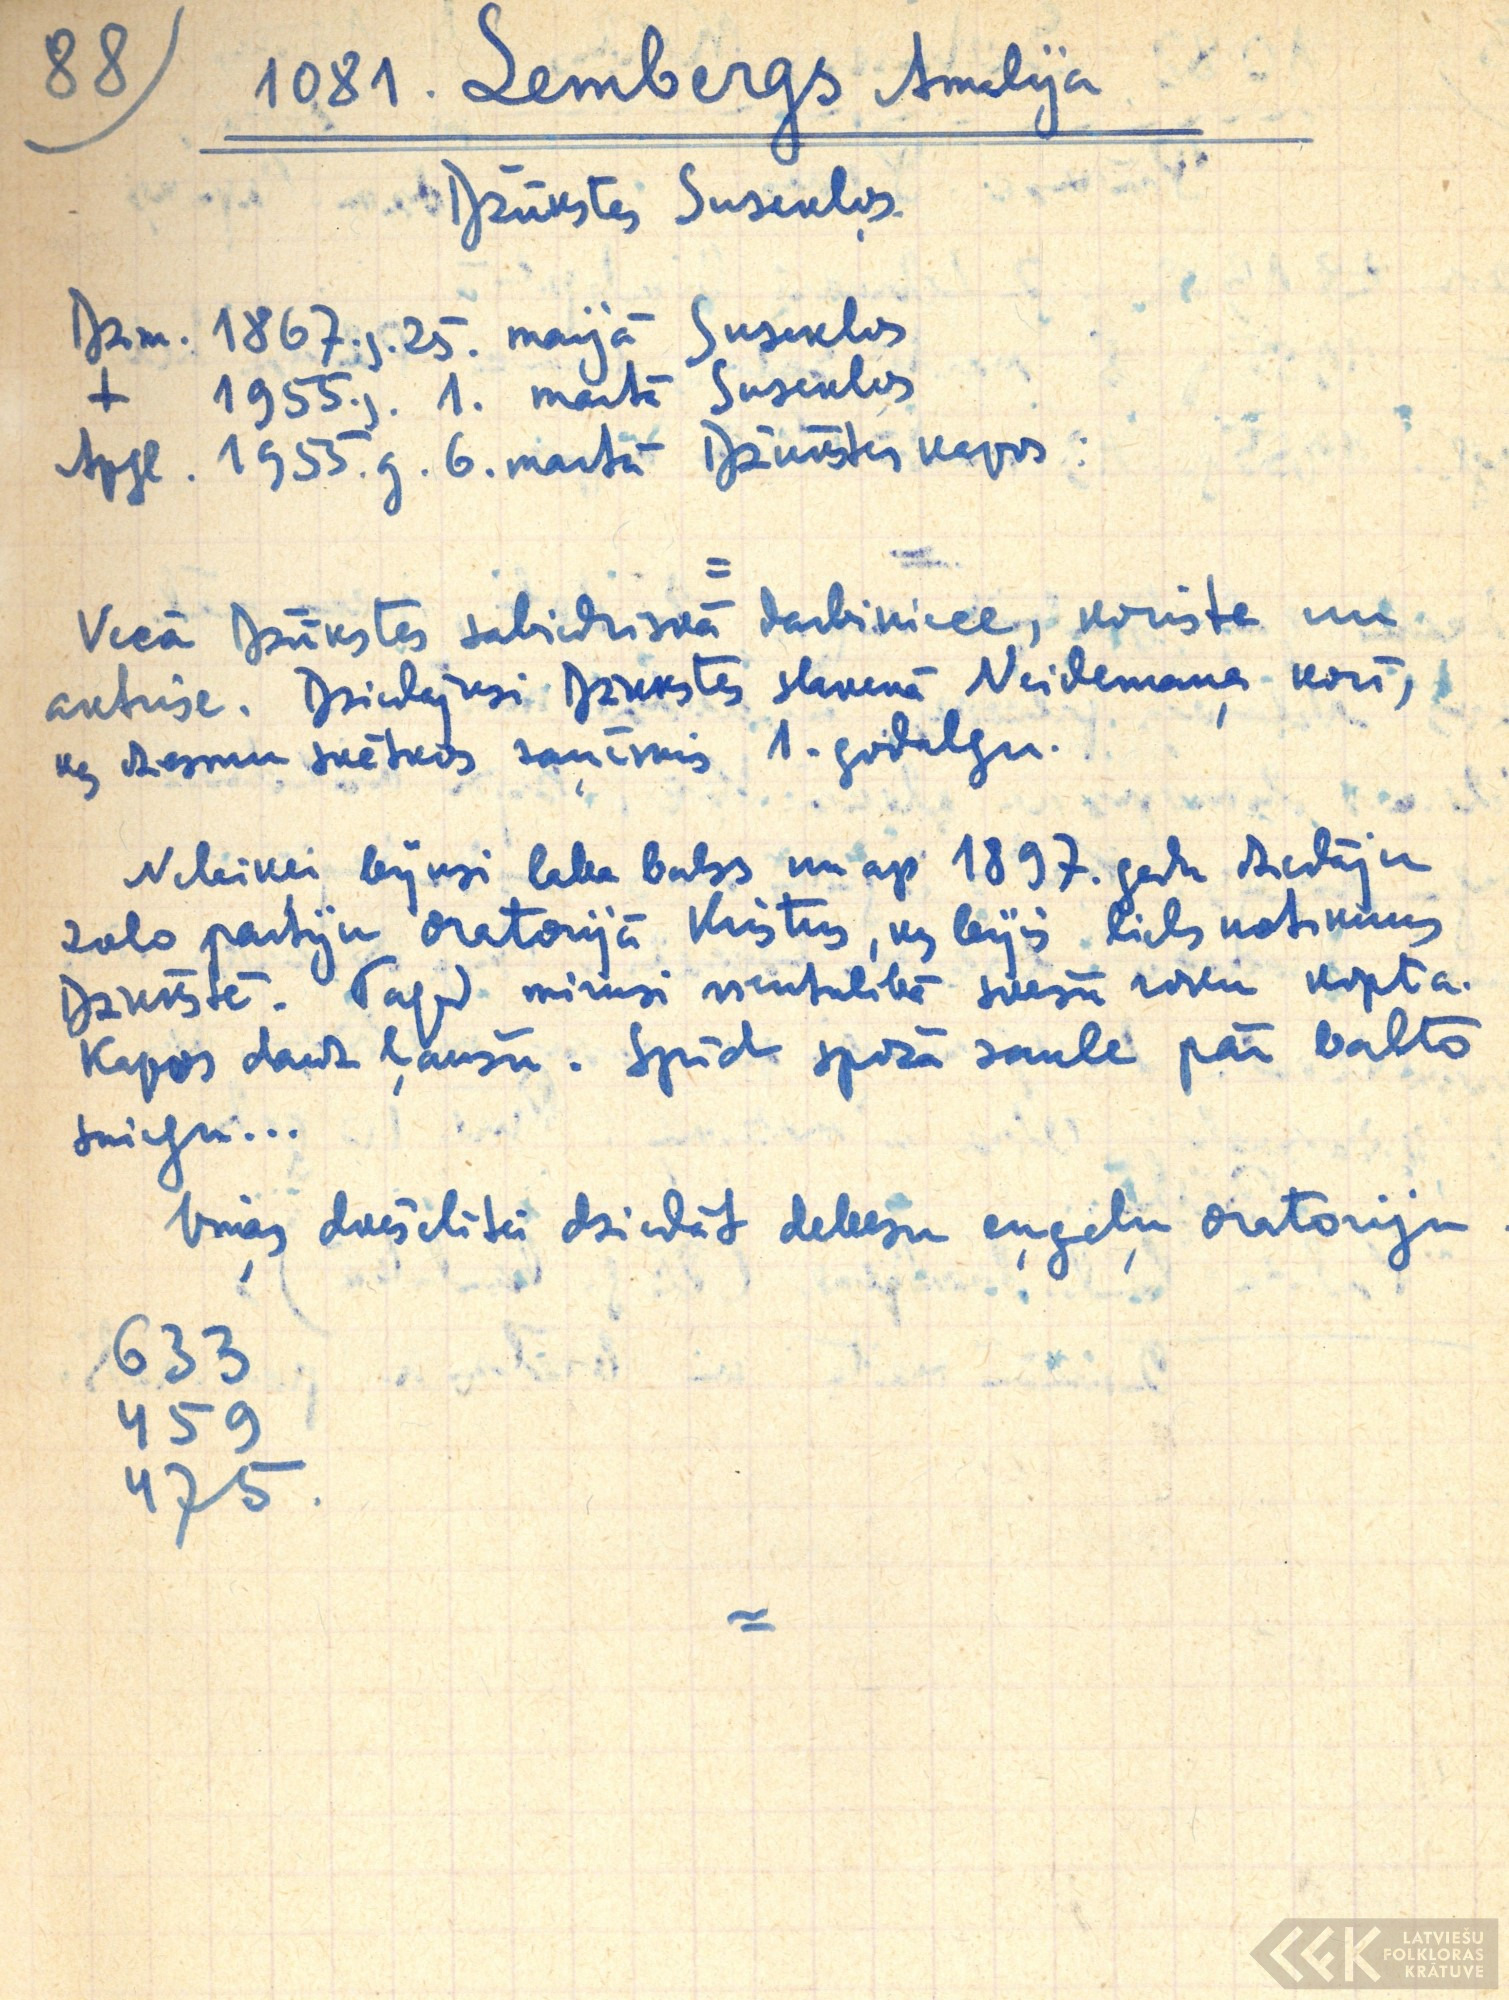 88)
1081. Lembergs Amalija
Džūkstes Susekļos.
Dzim. 1867.g. 25. maijā Susekļos
+ 1955.g. 1. martā Susekļos
Apgl. 1955.g. 6. martā Džūkstes kapos:
=
Vecā Džūkstes sabiedriskā darbiniece, koriste un
aktrise. Dziedājusi Džūkstes slavenā Neidemaņa korī,
kas dziesmu svētkos saņēmis 1. godalgu.
Nelaiķei bijusi laba balss un ap 1897. gadu dziedājusi
solo partiju oratorijā Kristus, kas bijis liels notikums
Džūkstē. Tagad mirusi vientulībā svešu roku kopta.
Kapos daudz ļaužu. Spīd spoža saule pār balto
sniegu...
Viņas dvēselītei dziedāt debesu eņģeļu oratoriju.
633
459
475.
=
LATVIEŠU
FOLKLORAS
KRĀTUVE